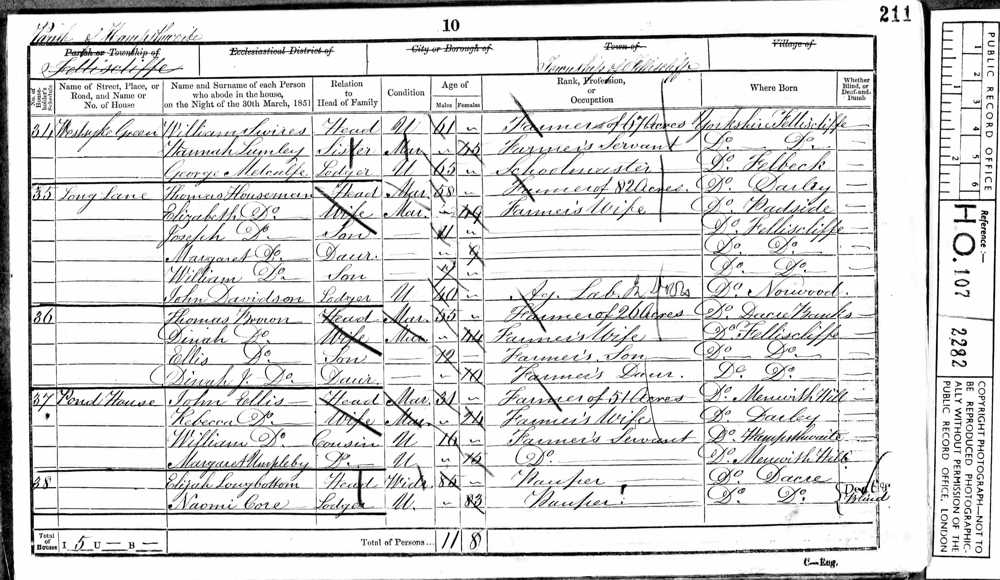 10
211
Parish of Hampsthwaite
Parish or Township of
Ecclesiastical District of
City or Borough of
Town of
Village of
Felliscliffe
Township of Felliscliffe
No. of House-holder's Schedule
Name of Street, Place, or Road, and Name or No. of House
Name and Surname of each Person who abode in the house, on the Night of the 30th March, 1851
Relation to Head of Family
Condition
Age of
Males
Females
Rank, Profession, or Occupation
Where Born
Whether Blind, or Deaf-and-Dumb
34 Wesxyke Green William Swires Head U 61 Farmer of 67 Acres Yorkshire Felliscliffe
Hannah Lumley Sister Mar Farmer's Servant Do. Do.
George Metcalfe Lodger U 65 Schoolmaster Do. Felbeck
35 Long Lane Thomas Houseman Head Mar 58 Farmer of 82 Acres Do. Darley
Elizabeth Do. Wife Mar. 49 Farmer's Wife Do. Padside
Joseph Do. Son 11 Do. Felliscliffe
Margaret Do. Daur. Do. Do.
William Do. Son Do. Do.
John Davidson Lodger U 40 Ag. Lab. Do. Norwood
36 Thomas Brown Head Mar. 35 Farmer of 26 Acres Do. Dacre Banks
Dinah Do. Wife Mar. 44 Farmer's Wife Do. Felliscliffe
Ellis Do. Son 12 Farmer's Son Do. Do.
Dinah J. Do. Daur. 10 Farmer's Daur. Do. Do.
37 Pond House John Ellis Head Mar. 31 Farmer of 51 Acres Do. Menwith Hill
Rebecca Do. Wife Mar. Farmer's Wife Do. Darley
William Do. Cousin U 16 Farmer's Servant Do. Hampsthwaite
Margaret Umpleby Do. U Do. Do. Menwith Hill
38 Elijah Longbottom Head Widr. 86 Pauper Do. Dacre
Naomi Core Lodger U. 83 Pauper Do. Do. Blind
Total of Houses I 5 U — B —
Total of Persons... 11 8
C—Eng.
PUBLIC RECORD OFFICE
1 2 3 4 5 6
Reference:—
HO. 107
2282
COPYRIGHT PHOTOGRAPH—NOT TO BE REPRODUCED PHOTOGRAPHICALLY WITHOUT PERMISSION OF THE PUBLIC RECORD OFFICE, LONDON